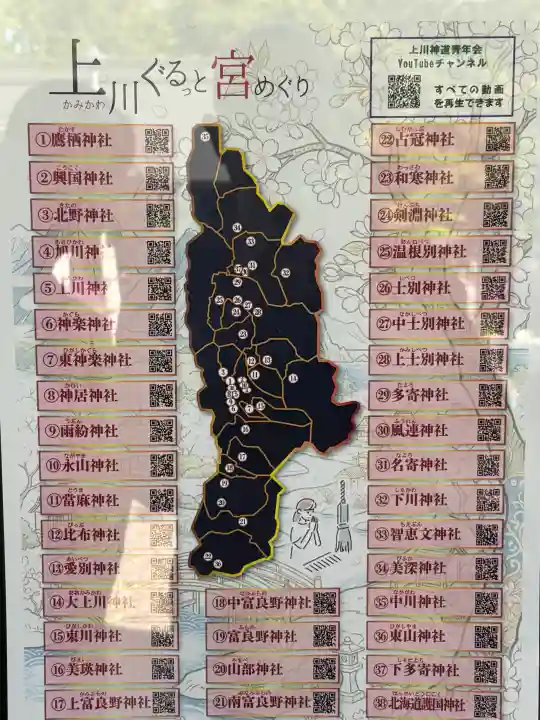 上川ぐるっと宮めぐり
かみかわ
上川神道青年会
YouTubeチャンネル
すべての動画
を再生できます
①鷹栖神社
②興国神社
③北野神社
④旭川神社
⑤上川神社
⑥神楽神社
⑦東神楽神社
⑧神居神社
⑨雨紛神社
⑩永山神社
⑪當麻神社
⑫比布神社
⑬愛別神社
⑭大上川神社
⑮東川神社
⑯美瑛神社
⑰上富良野神社
⑱中富良野神社
⑲富良野神社
⑳山部神社
㉑南富良野神社
㉒占冠神社
㉓和寒神社
㉔剣淵神社
㉕温根別神社
㉖士別神社
㉗中士別神社
㉘上士別神社
㉙多寄神社
㉚風連神社
㉛名寄神社
㉜下川神社
㉝智恵文神社
㉞美深神社
㉟中川神社
㊱東山神社
㊲下多寄神社
㊳北海道護国神社